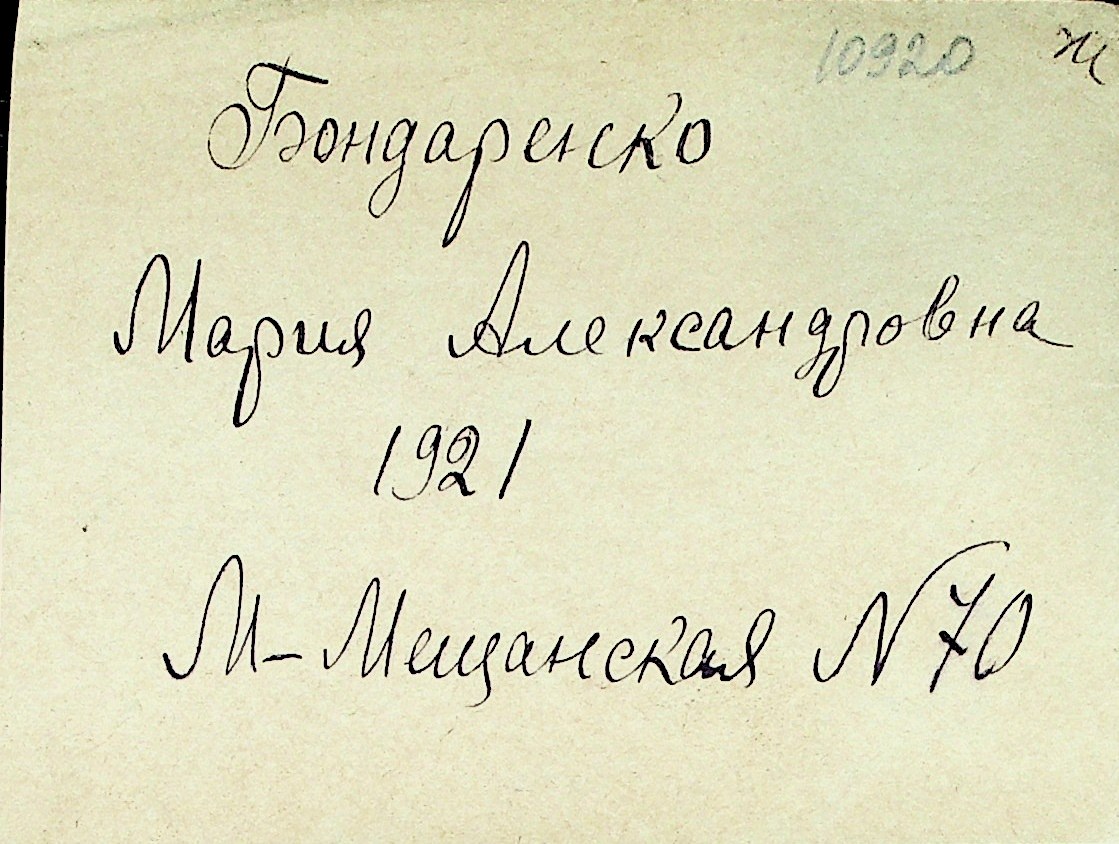 10920 ж
Бондаренко
Мария Александровна
1921
М-Мещанская N 70